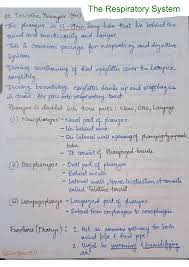 The Respiratory System
The pharynx is 12-14cm long tube that lie behind the nasal and
It is common passage for respiratory and digestive system.
During swallowing of food epiglottis cover the larynx completely.
During breathing, epiglottis stands up and oesophagus is closed. Air pass into respiratory tract
Pharynx is divided into three part : Naso, Oro, Laryngo
(i) Nasopharynx - Nasal part of pharynx
- Lie behind nose
- On lateral wall opening of
- It consist of Pharyngeal tonsils
(ii) Oropharynx - Oral part of pharynx
- Behind mouth
- Lateral wall, there is collection of tonsils called Palatine tonsil
(iii) Laryngopharynx - Laryngeal part of pharynx
- Extend from oropharynx to oesophagus.
Functions (Pharynx) : 1. Act as common pathway for both
2. warming & humidifying air